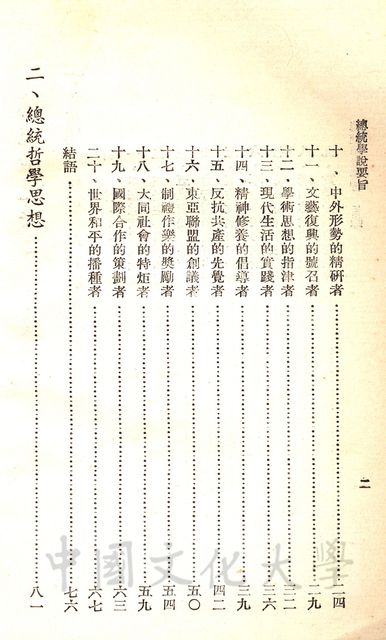 總統學說要旨
十、中外形勢的精研者……二四
十一、文藝復興的號召者……二九
十二、學術思想的指津者……三二
十三、現代生活的實踐者……三六
十四、精神修養的倡導者……三九
十五、反抗共產的先覺者……四二
十六、東亞聯盟的創議者……五〇
十七、制禮作樂的獎勵者……五四
十八、大同社會的特炬者……五九
十九、國際合作的策劃者……六三
二十、世界和平的播種者……六七
結語……七六
二、總統哲學思想……八一
二
中國文化大學